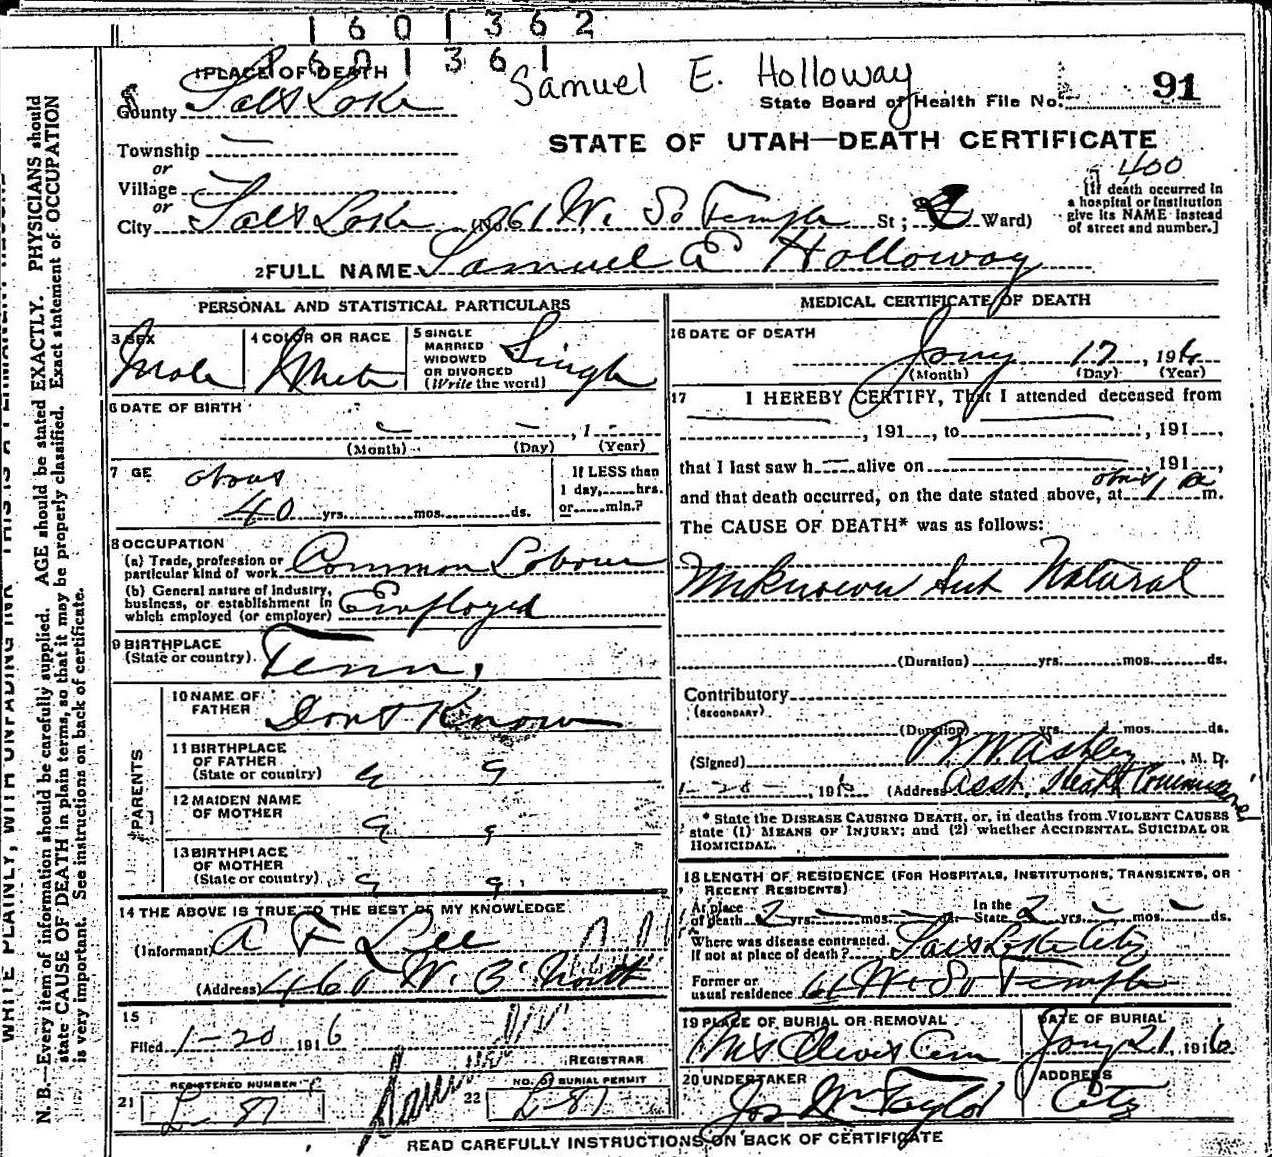 1 6 0 1 3 6 2
6 0 1 3 6 1
Samuel E. Holloway
1 PLACE OF DEATH
County Salt Lake
State Board of Health File No. 91
STATE OF UTAH—DEATH CERTIFICATE
Township
or
Village
or
City Salt Lake (No. 61 W. So Temple St ; Ward)
400
[If death occurred in
a hospital or institution
give its NAME instead
of street and number.]
2 FULL NAME Samuel E Holloway
PERSONAL AND STATISTICAL PARTICULARS
3 SEX Male
4 COLOR OR RACE White
5 SINGLE
MARRIED
WIDOWED
OR DIVORCED
(Write the word) Single
6 DATE OF BIRTH
(Month) (Day) , 1 (Year)
7 GE about
40 yrs. mos. ds.
If LESS than
1 day, hrs.
or min.?
8 OCCUPATION
(a) Trade, profession or
particular kind of work Common Laborer
(b) General nature of industry,
business, or establishment in
which employed (or employer) Employed
9 BIRTHPLACE
(State or country) Tenn.
PARENTS
10 NAME OF
FATHER Dont Know
11 BIRTHPLACE
OF FATHER
(State or country) " "
12 MAIDEN NAME
OF MOTHER " "
13 BIRTHPLACE
OF MOTHER
(State or country) " "
14 THE ABOVE IS TRUE TO THE BEST OF MY KNOWLEDGE
(Informant) A F Lee
(Address) 460 W.
15
Filed 1-20 1916
REGISTRAR
21 REGISTERED NUMBER L-87
22 NO. OF BURIAL PERMIT L-87
MEDICAL CERTIFICATE OF DEATH
16 DATE OF DEATH
Jany 17, 1916
(Month) (Day) (Year)
17 I HEREBY CERTIFY, That I attended deceased from
, 191 , to , 191 ,
that I last saw h alive on , 191 ,
and that death occurred, on the date stated above, at about 1 a m.
The CAUSE OF DEATH* was as follows:
Unknown but Natural
(Duration) yrs. mos. ds.
Contributory
(SECONDARY)
(Duration) yrs. mos. ds.
(Signed) B. W. Ashley, M. D.
1-20-, 1916 (Address Asst. Health Commissioner
* State the DISEASE CAUSING DEATH, or, in deaths from VIOLENT CAUSES
state (1) MEANS OF INJURY; and (2) whether ACCIDENTAL, SUICIDAL OR
HOMICIDAL.
18 LENGTH OF RESIDENCE (FOR HOSPITALS, INSTITUTIONS, TRANSIENTS, OR
RECENT RESIDENTS)
At place
of death 2 yrs. mos. ds. In the
State 2 yrs. mos. ds.
Where was disease contracted,
If not at place of death? Salt Lake City
Former or
usual residence 61 W. So Temple
19 PLACE OF BURIAL OR REMOVAL
Mt Olivet Cem
DATE OF BURIAL
Jany 21, 1916
20 UNDERTAKER
Jos Wm Taylor
ADDRESS
City
READ CAREFULLY INSTRUCTIONS ON BACK OF CERTIFICATE
WRITE PLAINLY, WITH UNFADING INK—THIS IS A PERMANENT RECORD
N. B.—Every item of information should be carefully supplied. AGE should be stated EXACTLY. PHYSICIANS should
state CAUSE OF DEATH in plain terms, so that it may be properly classified. Exact statement of OCCUPATION
is very important. See instructions on back of certificate.